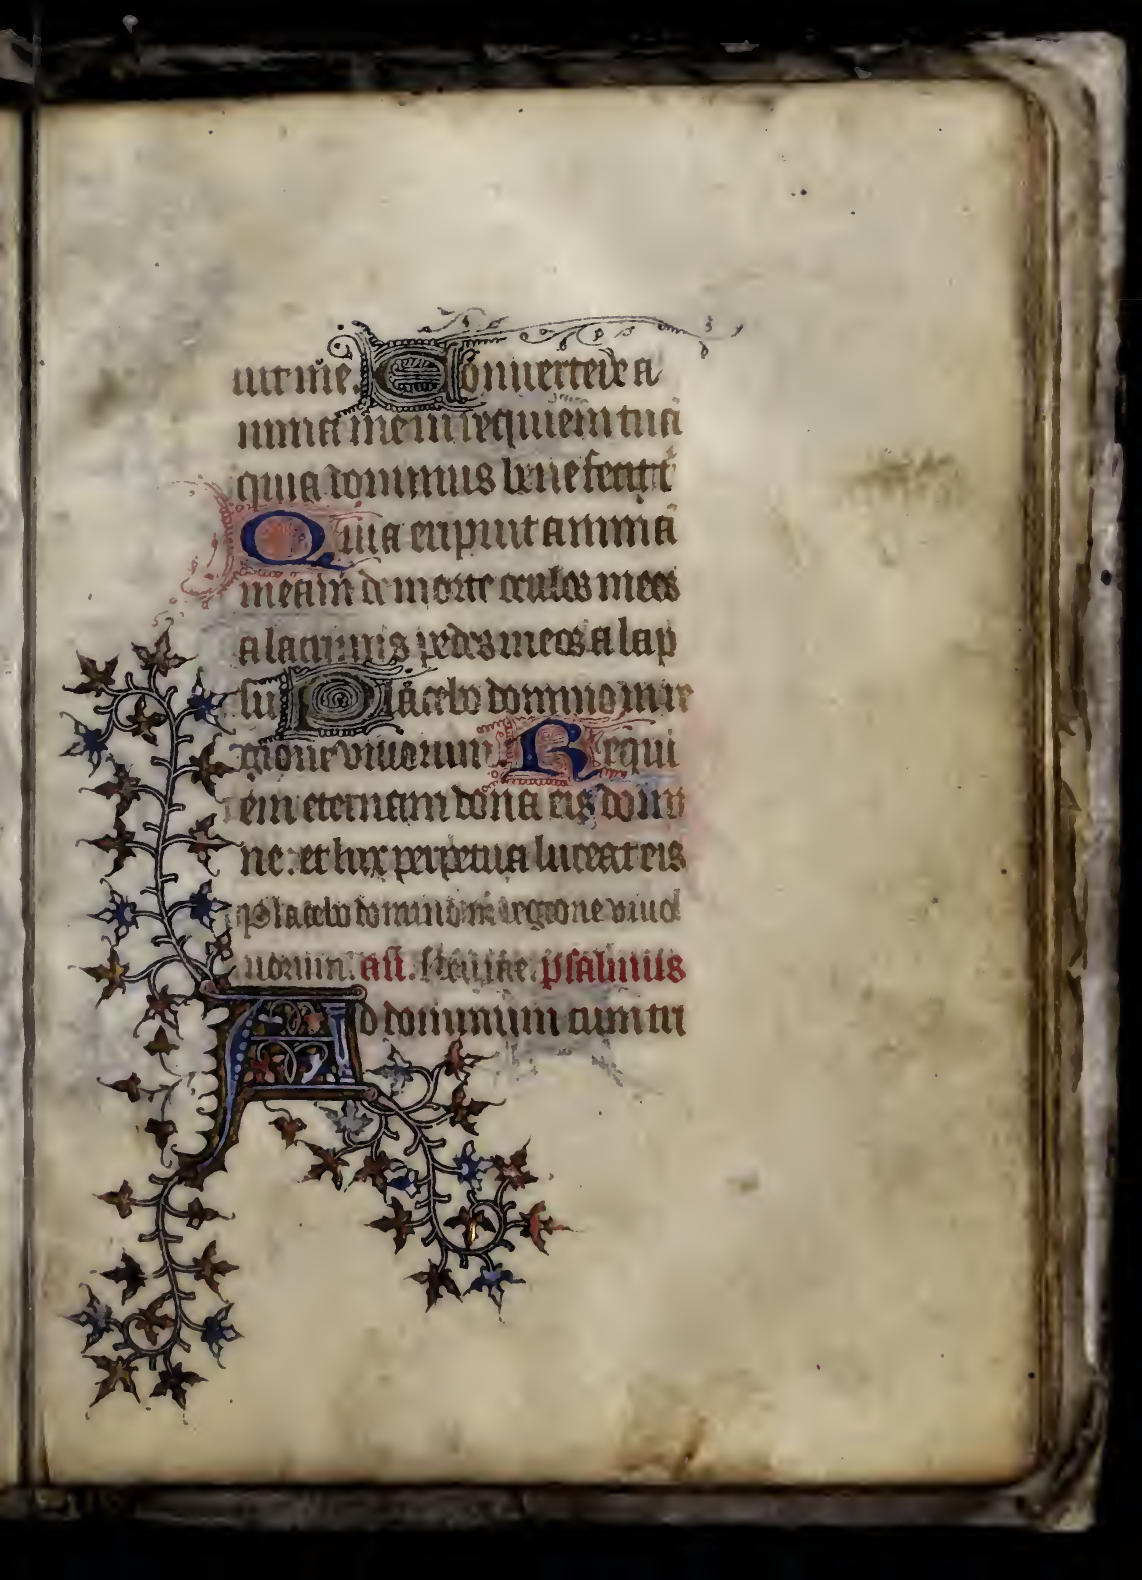 uit me. Conuertere a
nima mea in requiem tuā
quia dominus bene fecit t̄
Quia eripuit animā
meam de morte oculos meos
a lacrimis pedes meos a lap
su. Placebo domino in re
gione viuorum. Requi
em eternam dona eis domi
ne: et lux perpetua luceat eis
Placebo domino in regione viuo
ant. psalmus
Ad dominum cum tri